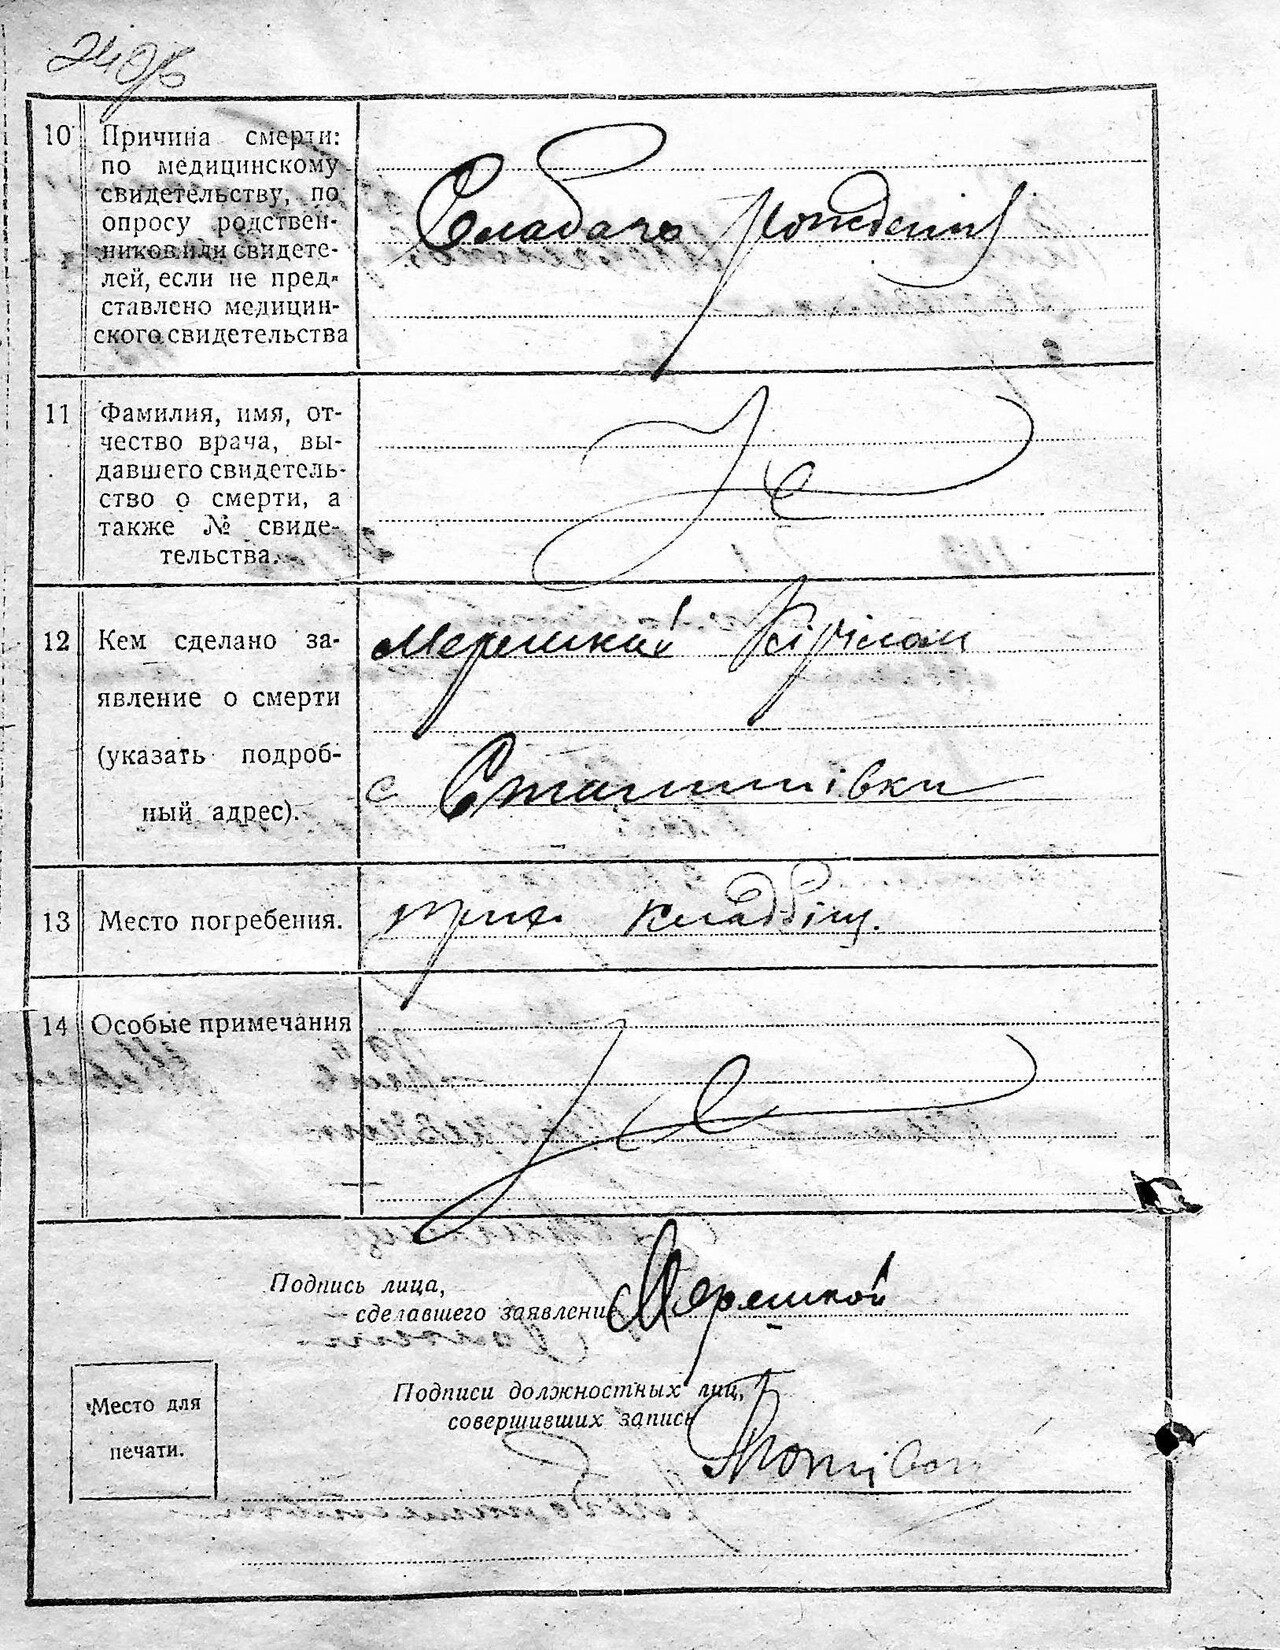 24 об
10 Причина смерти:
по медицинскому
свидетельству, по
опросу родствен-
ников или свидете-
лей, если не пред-
ставлено медицин-
ского свидетельства
Слабачь рождения
11 Фамилия, имя, от-
чество врача, вы-
давшего свидетель-
ство о смерти, а
также № свиде-
тельства.
12 Кем сделано за-
явление о смерти
(указать подроб-
ный адрес).
Мережкой
с Сталинівки
13 Место погребения.
кладбіщ.
14 Особые примечания
Подпись лица,
сделавшего заявление Мережкой
Подписи должностных лиц,
совершивших запись
Место для
печати.